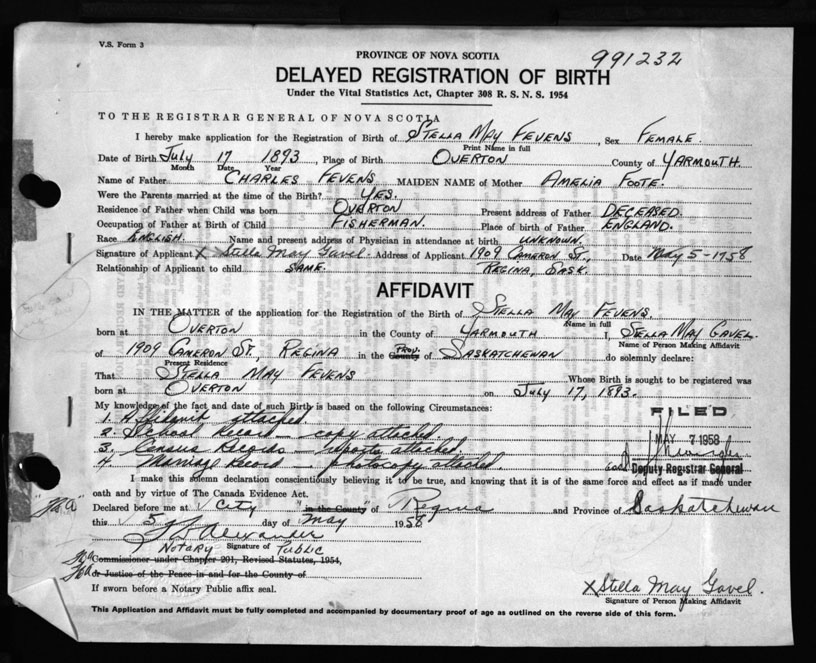 V.S. Form 3
PROVINCE OF NOVA SCOTIA 991232
DELAYED REGISTRATION OF BIRTH
Under the Vital Statistics Act, Chapter 308 R. S. N. S. 1954
TO THE REGISTRAR GENERAL OF NOVA SCOTIA
I hereby make application for the Registration of Birth of STELLA MAY FEVENS, Sex FEMALE.
Print Name in full
Date of Birth July 17 1893, Place of Birth OVERTON County of YARMOUTH.
Month Date Year
Name of Father CHARLES FEVENS MAIDEN NAME of Mother AMELIA FOOTE.
Were the Parents married at the time of the Birth? YES.
Residence of Father when Child was born OVERTON Present address of Father DECEASED.
Occupation of Father at Birth of Child FISHERMAN. Place of birth of Father ENGLAND.
Race ENGLISH. Name and present address of Physician in attendance at birth UNKNOWN.
Signature of Applicant X Stella May Gavel. Address of Applicant 1909 CAMERON ST., Date May 5-1958
Relationship of Applicant to child SAME. REGINA, SASK.
AFFIDAVIT
IN THE MATTER of the application for the Registration of the Birth of STELLA MAY FEVENS.
Name in full
born at OVERTON in the County of YARMOUTH I, STELLA MAY GAVEL
Name of Person Making Affidavit
of 1909 CAMERON ST., REGINA in the County PROV. of SASKATCHEWAN do solemnly declare:
Present Residence
That STELLA MAY FEVENS Whose Birth is sought to be registered was
born at OVERTON on July 17, 1893.
My knowledge of the fact and date of such Birth is based on the following Circumstances:
1. Affidavit attached
2. School Record - copy attached
3. Census Records - reports attached.
4. Marriage Record - photocopy attached.
FILED
MAY 7 1958
Deputy Registrar General
I make this solemn declaration conscientiously believing it to be true, and knowing that it is of the same force and effect as if made under
oath and by virtue of The Canada Evidence Act.
Declared before me at City "in the County" of Regina and Province of Saskatchewan
this 5 day of May 1958
Alexander
NOTARY Signature of PUBLIC
Commissioner under Chapter 201, Revised Statutes, 1954,
or Justice of the Peace in and for the County of
If sworn before a Notary Public affix seal.
X Stella May Gavel.
Signature of Person Making Affidavit
This Application and Affidavit must be fully completed and accompanied by documentary proof of age as outlined on the reverse side of this form.